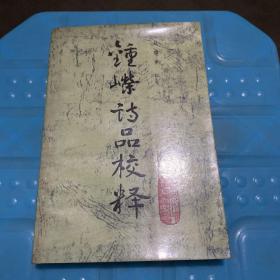 鍾嶸詩品校释